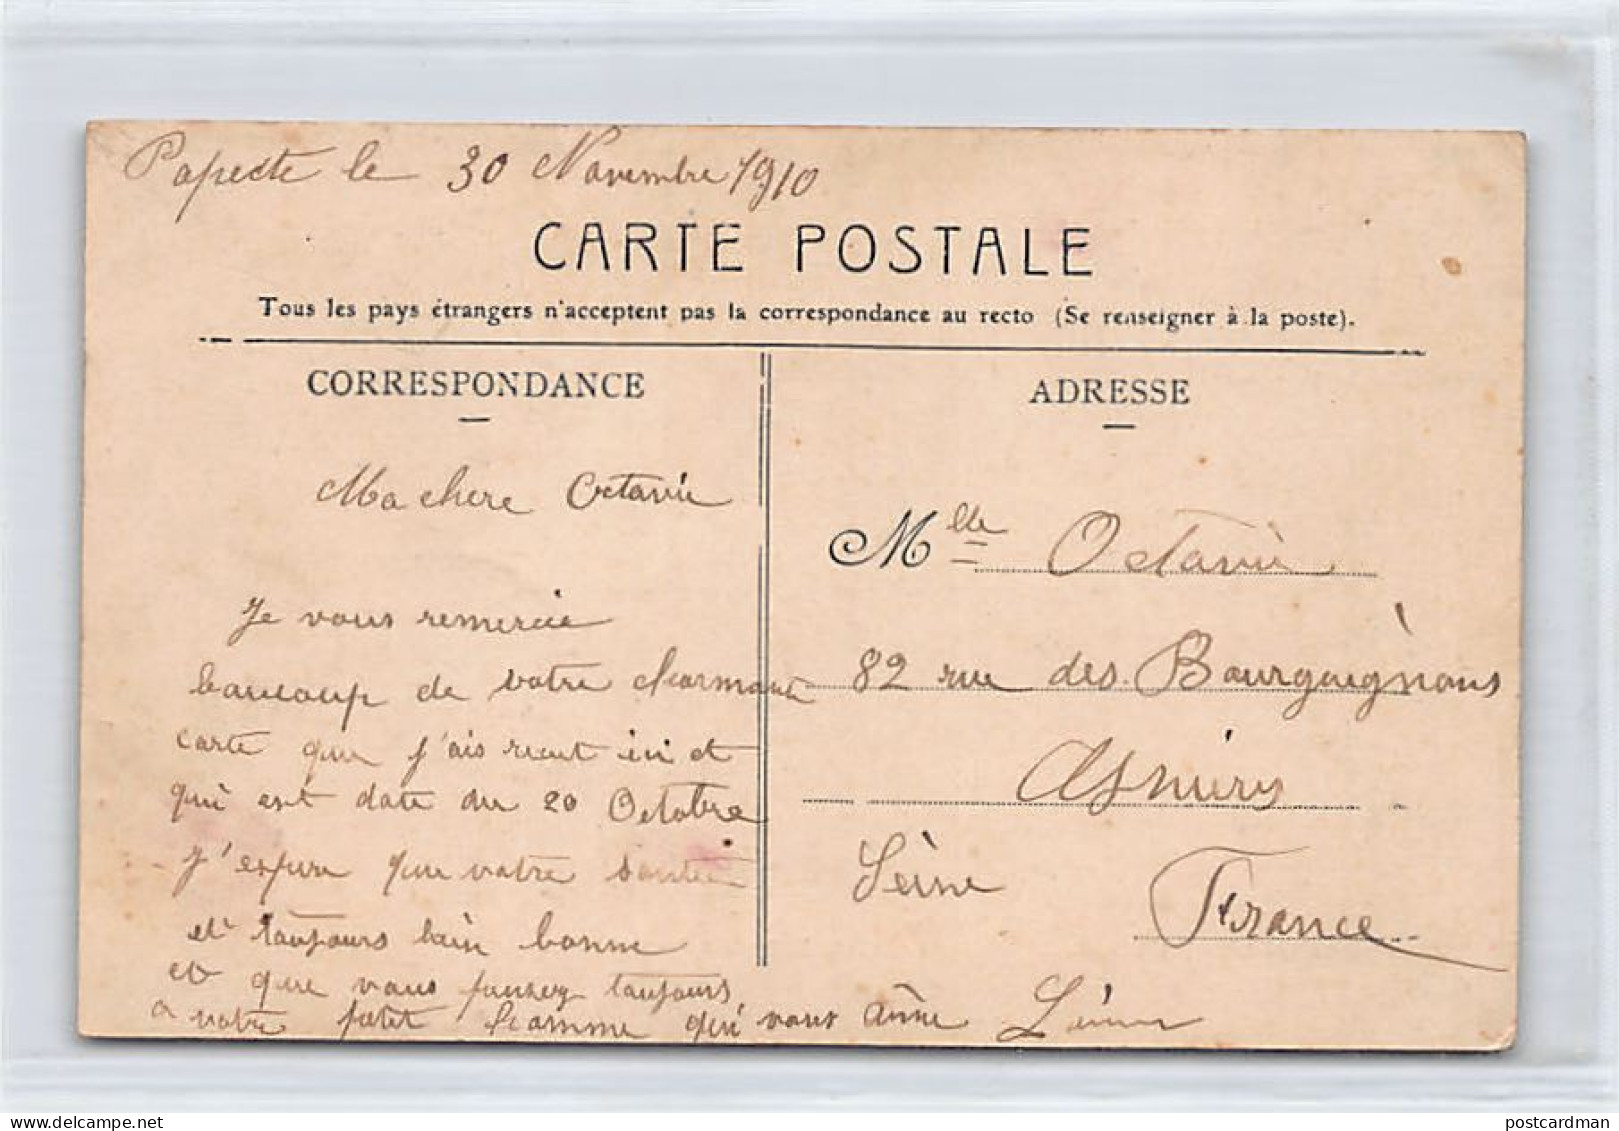 Papeete le 30 Novembre 1910
CARTE POSTALE
Tous les pays étrangers n'acceptent pas la correspondance au recto (Se renseigner à la poste).
CORRESPONDANCE
Ma chere Octavie
Je vous remercie
beaucoup de votre charmante
carte que j'ais recut ici et
qui est date du 20 Octobre
J'espere que votre santée
et toujours bien bonne
et que vous pensez toujours
a votre petit homme qui vous aime
ADRESSE
Mlle Octavie
82 rue des Bourguignons
Asniers
Seine
France
postcardman